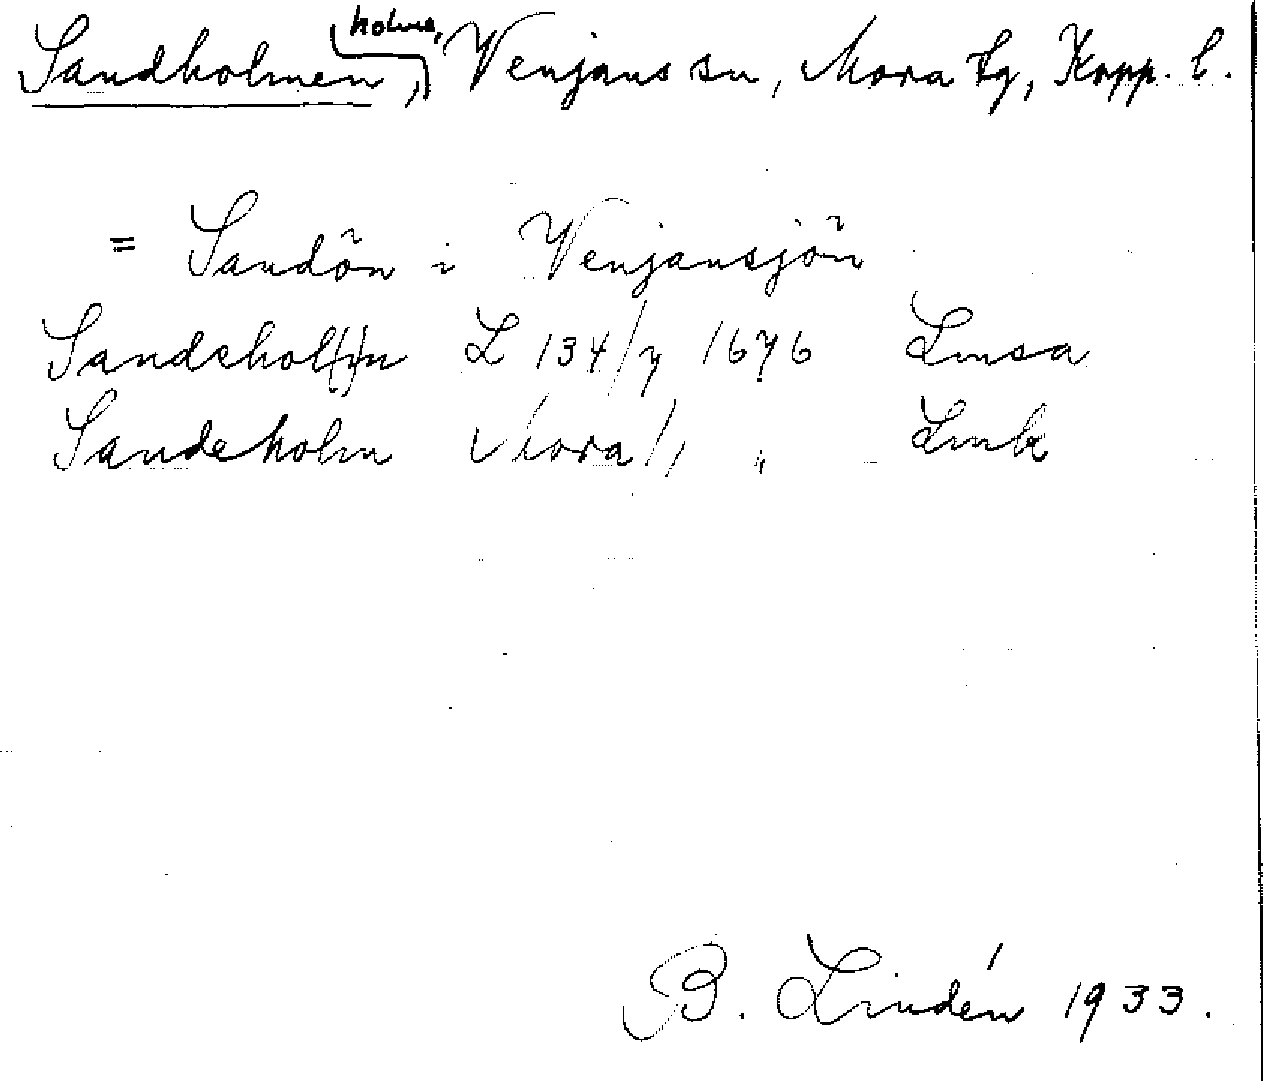 Sandholmen, holme, Venjans sn, Mora tg, Kopp. l.
= Sandön i Venjansjön
Sandehol(m)n L 134/7 1676 Lmsa
Sandeholm Mora /, " Lmk
B. Lindén 1933.